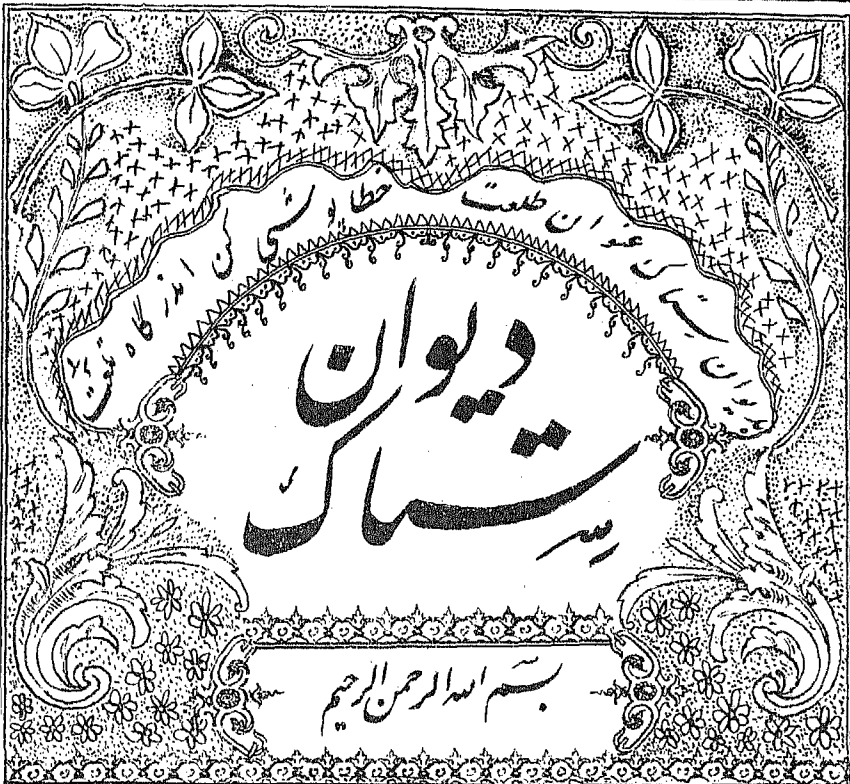 دیوان ستاک عنوان طلعت خطا پوشی کن اندر گاه
دیوان
ستاک
بسم الله الرحمن الرحیم